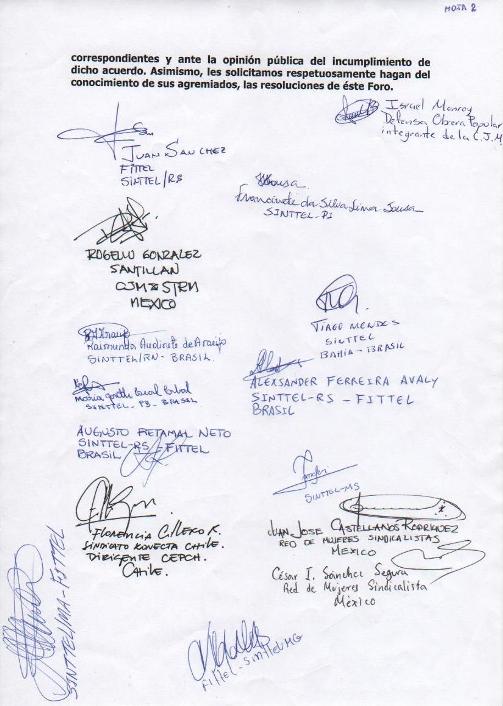 HOJA 2
correspondientes y ante la opinión pública del incumplimiento de
dicho acuerdo. Asimismo, les solicitamos respetuosamente hagan del
conocimiento de sus agremiados, las resoluciones de éste Foro.
Israel Monroy
Defensa Obrera Popular
integrante de la C.J.M
JUAN SANCHEZ
FITTEL
SINTTEL/RS
Francinete da Silva Lima Sousa
SINTTEL-PI
ROGELIO GONZALEZ
SANTILLAN
CJM STRM
MEXICO
TIAGO MENDES
SINTTEL
BAHIA - BRASIL
Raimundo Audinete de Araújo
SINTTEL/RN - BRASIL
ALEXSANDER FERREIRA AVALY
SINTTEL-RS - FITTEL
BRASIL
SINTTEL-PB - BRASIL
AUGUSTO RETAMAL NETO
SINTTEL-RS - FITTEL
BRASIL
SINTTEL-MS
JUAN JOSE CASTELLANOS RODRIGUEZ
RED DE MUJERES SINDICALISTAS
MEXICO
FLORENCIA
SINDICATO KONECTA CHILE.
DIRIGENTE CEPCH.
CHILE.
César I. Sánchez Segura
Red de Mujeres Sindicalista
México
SINTTEL/MA-FITTEL
FITTEL-SINTTEL MG